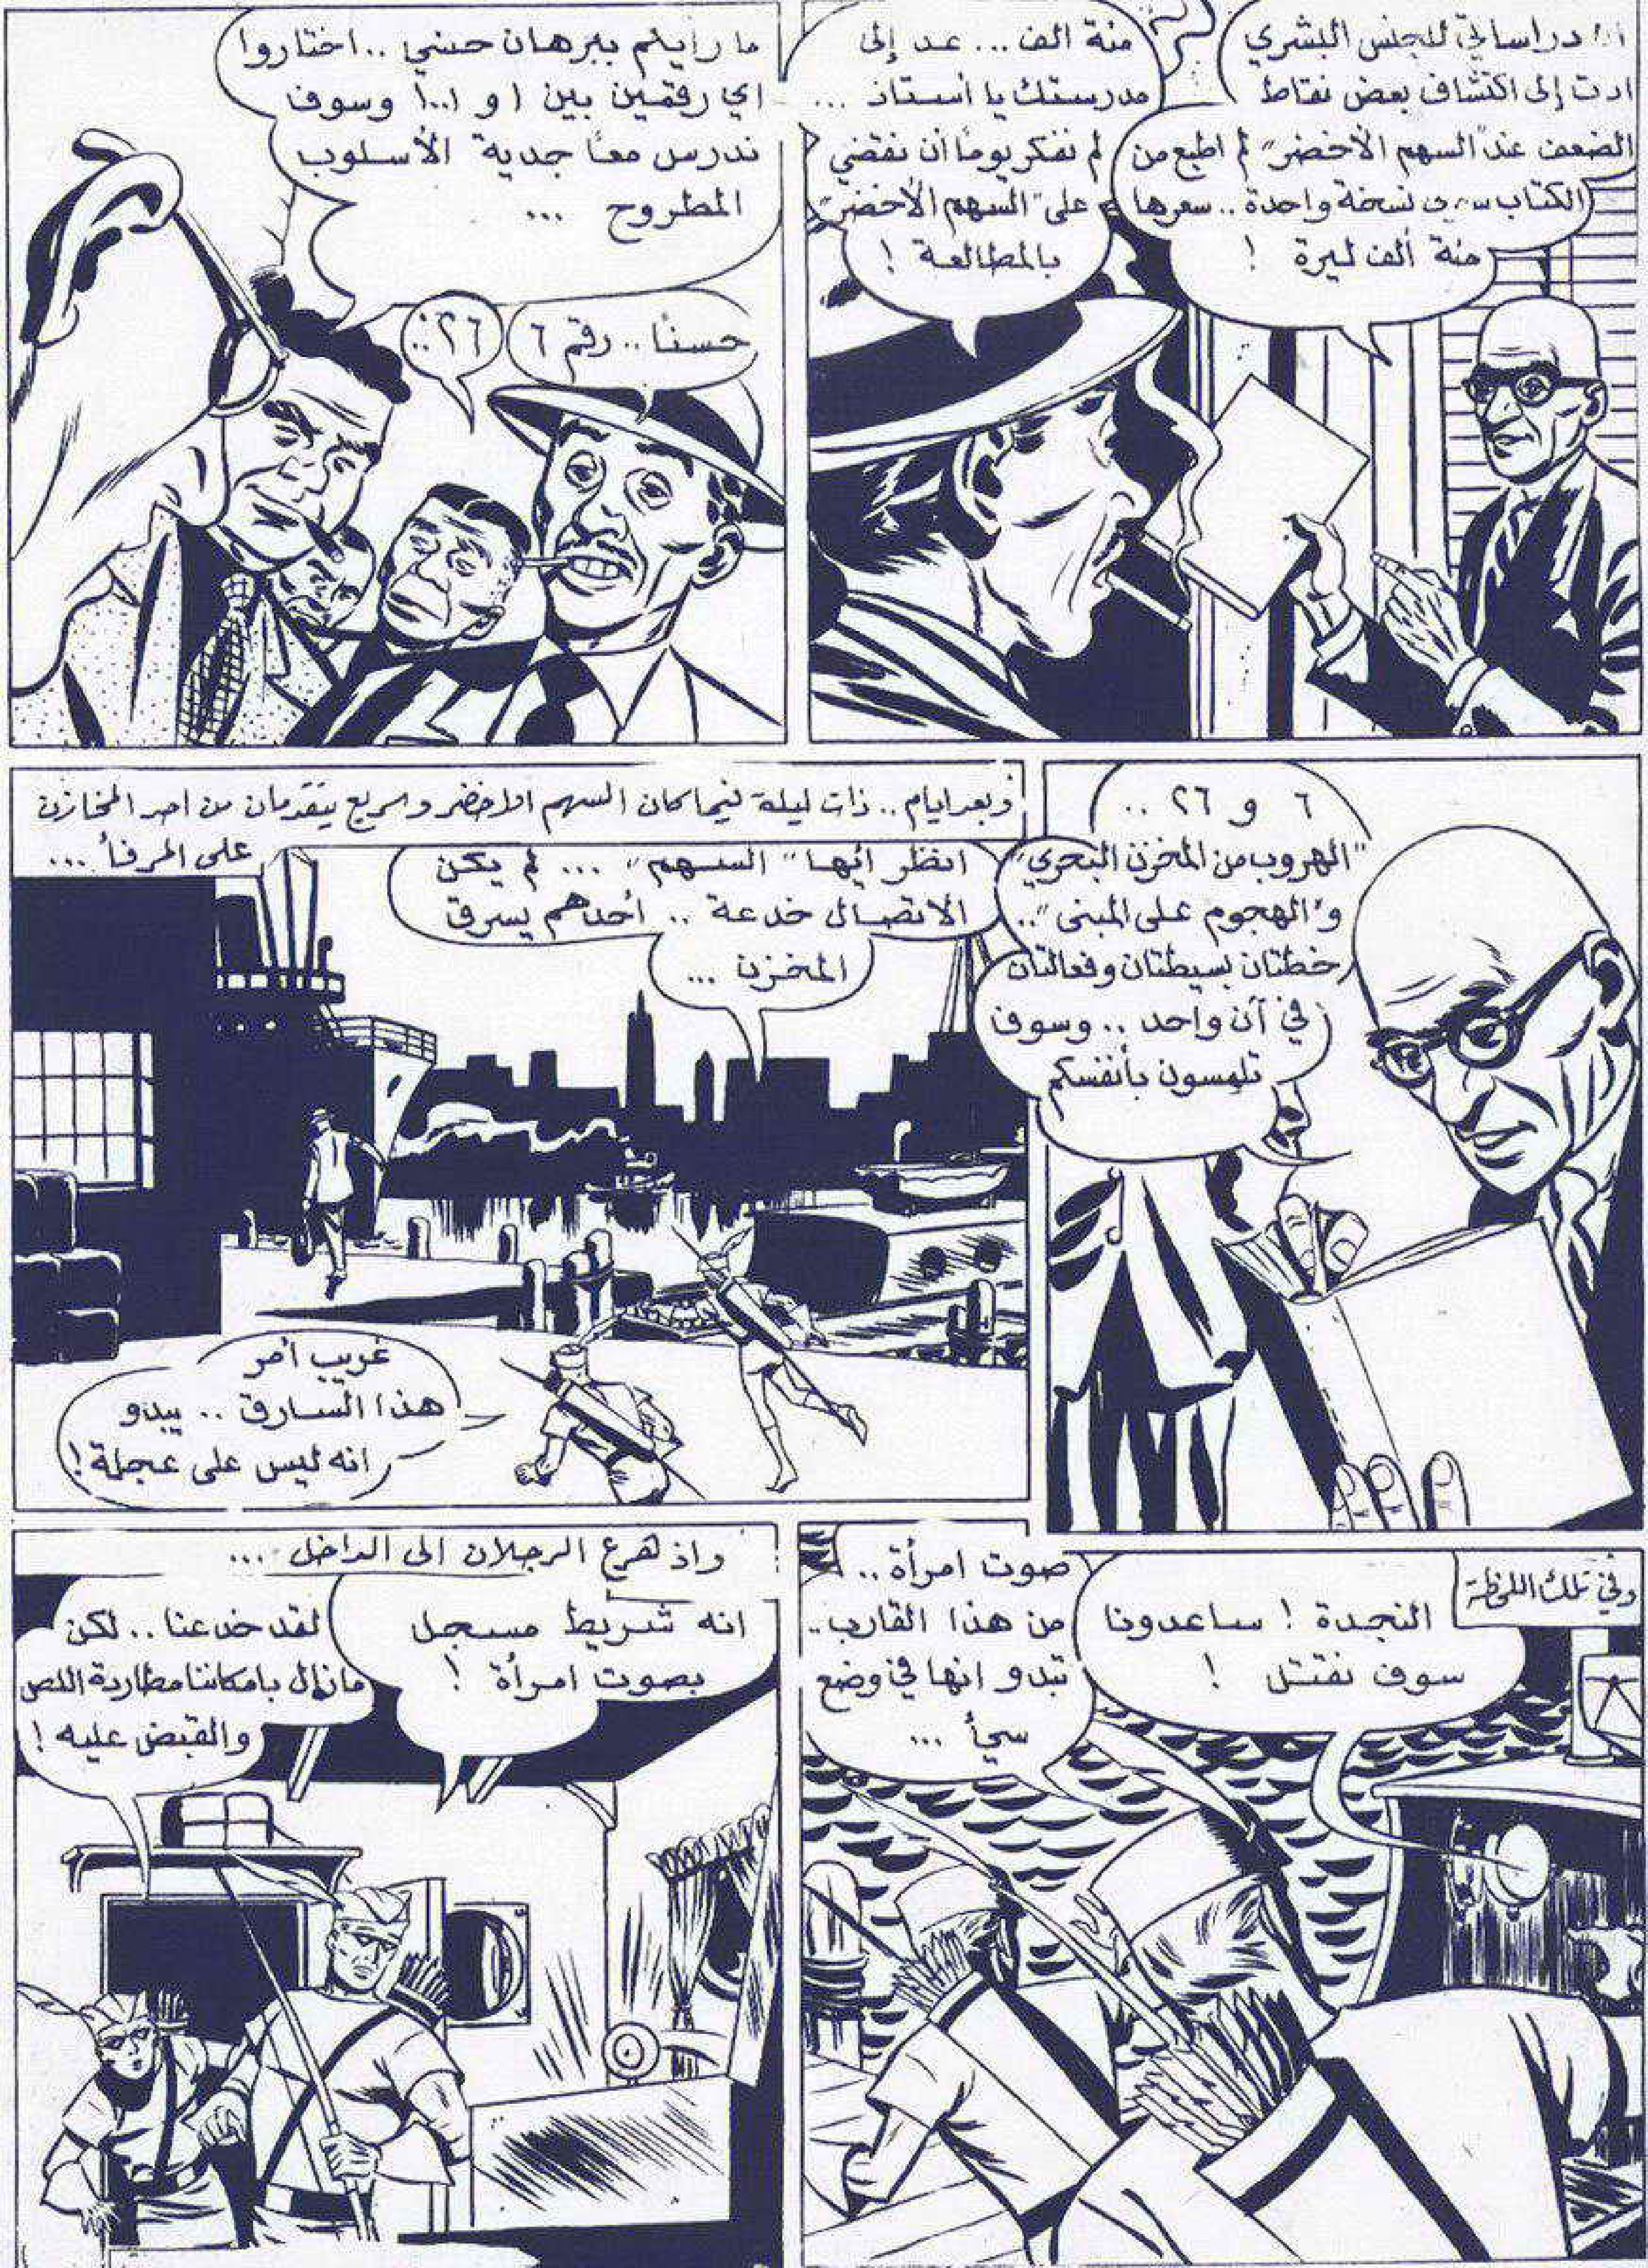 دراساتي للجنس البشري
ادت إلى اكتشاف بعض نقاط
الضعف عند "السهم الأخضر" لم اطبع من
الكتاب سوى نسخة واحدة.. سعرها
مئة ألف ليرة !
مئة الف... عد إلى
مدرستك يا استاذ ...
لم نفكر يوماً ان نقضي
على "السهم الأخضر"
بالمطالعة !
ما رأيكم ببرهان حسي .. اختاروا
اي رقمين بين ١ و ١٠٠١ وسوف
ندرس معاً جدية الأسلوب
المطروح ...
حسناً.. رقم ٦
٢٦ ..
٦ و ٢٦ ..
"الهروب من المخزن البحري"
و"الهجوم على المبنى"..
خطتان بسيطتان وفعالتان
في آن واحد .. وسوف
تلمسون بأنفسكم
وبعد ايام .. ذات ليلة فيما كان السهم الاخضر وسريع يتقدمان من احد المخازن
على المرفأ ...
انظر ايها "السهم" ... لم يكن
الاتصال خدعة .. أحدهم يسرق
المخزن ...
غريب أمر
هذا السارق .. يبدو
انه ليس على عجلة !
وفي تلك اللحظة
النجدة ! ساعدونا
سوف نقتل !
صوت امرأة ..
من هذا القارب..
تبدو انها في وضع
سيئ ...
واذ هرع الرجلان الى الداخل ...
انه شريط مسجل
بصوت امرأة !
لقد خدعنا .. لكن
مازال بامكاننا مطاردة اللص
والقبض عليه !